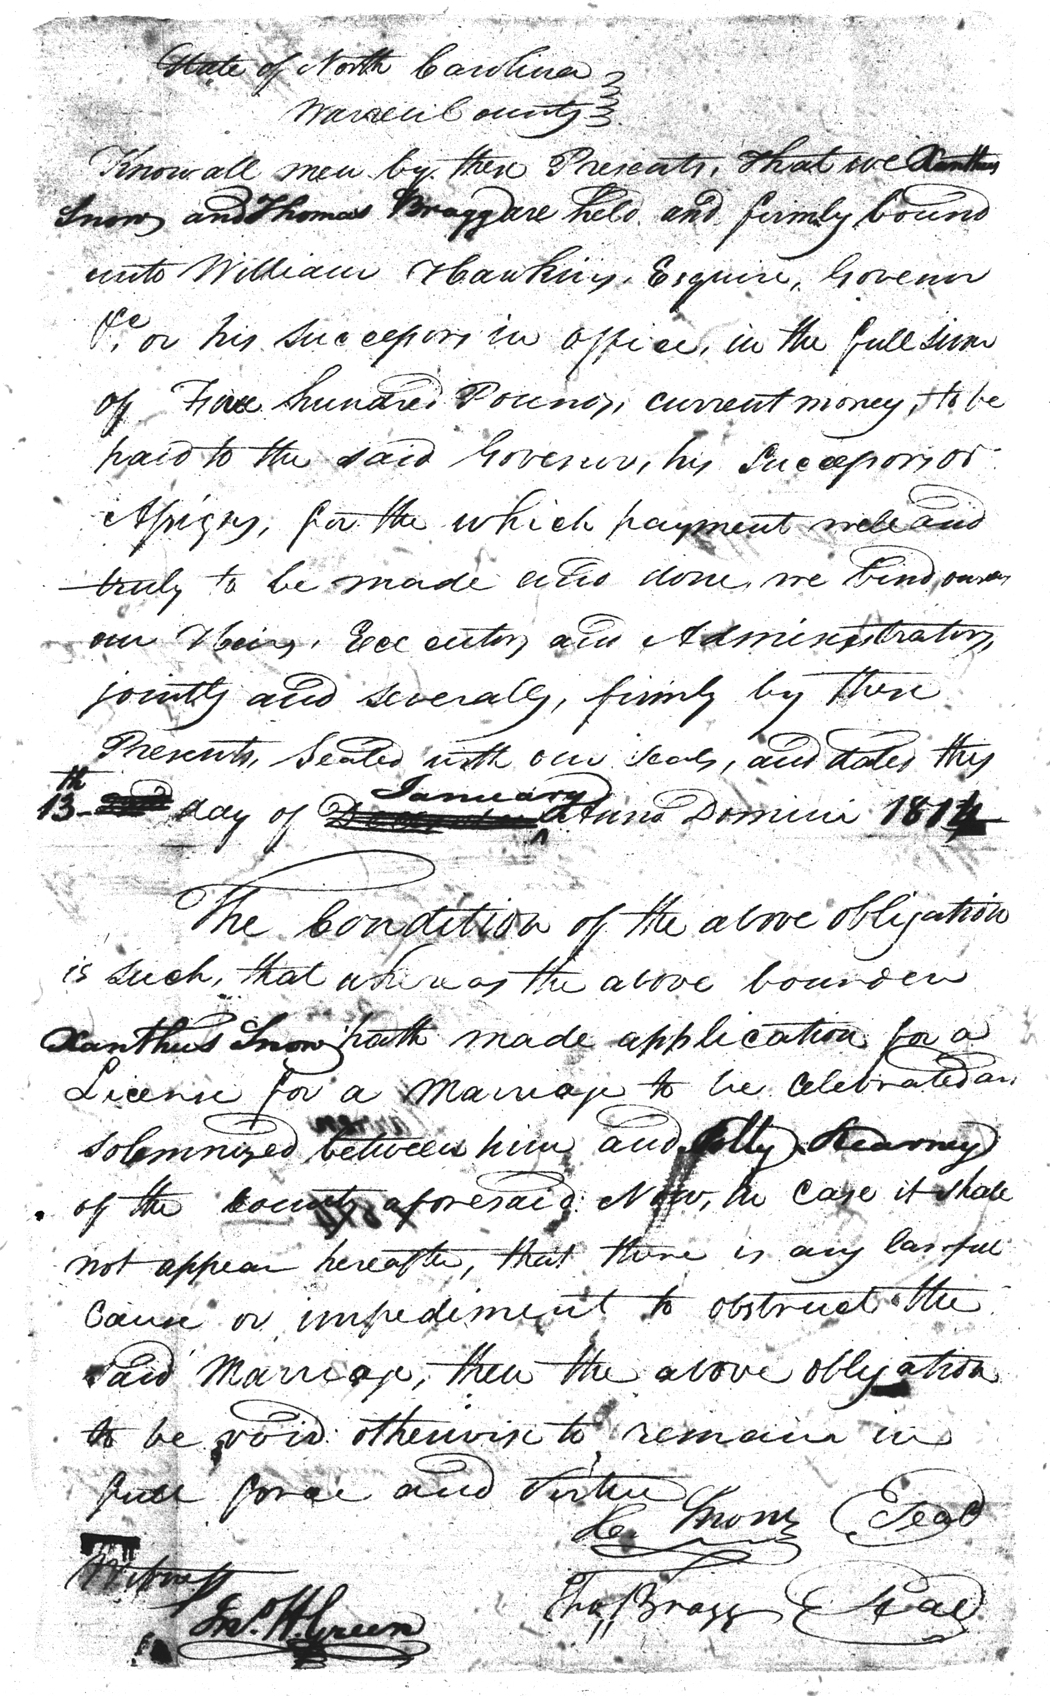 State of North Carolina
Warren County
Know all men by these Presents, that we Xanthus
Snow and Thomas Bragg are held and firmly bound
unto William Hawkins, Esquire, Governor
&c. or his Successors in office, in the full sum
of Five hundred Pounds, current money, to be
paid to the said Governor, his Successors or
Assigns, for the which payment well and
truly to be made and done, we bind ourselves
our Heirs, Executors and Administrators,
jointly and severally, firmly by these
Presents, Sealed with our Seals, and dated this
13th day of January Anno Domini 1814
The Condition of the above obligation
is such, that whereas the above bounden
Xanthus Snow hath made application for a
License for a Marriage to be celebrated and
solemnized between him and Kearney
of the County aforesaid: Now, in Case it shall
not appear hereafter, that there is any lawful
Cause or impediment to obstruct the
said Marriage, then the above obligation
to be void otherwise to remain in
full force and Virtue
Snow Seal
Witness
Thos. Bragg Seal
Jno. H. Green